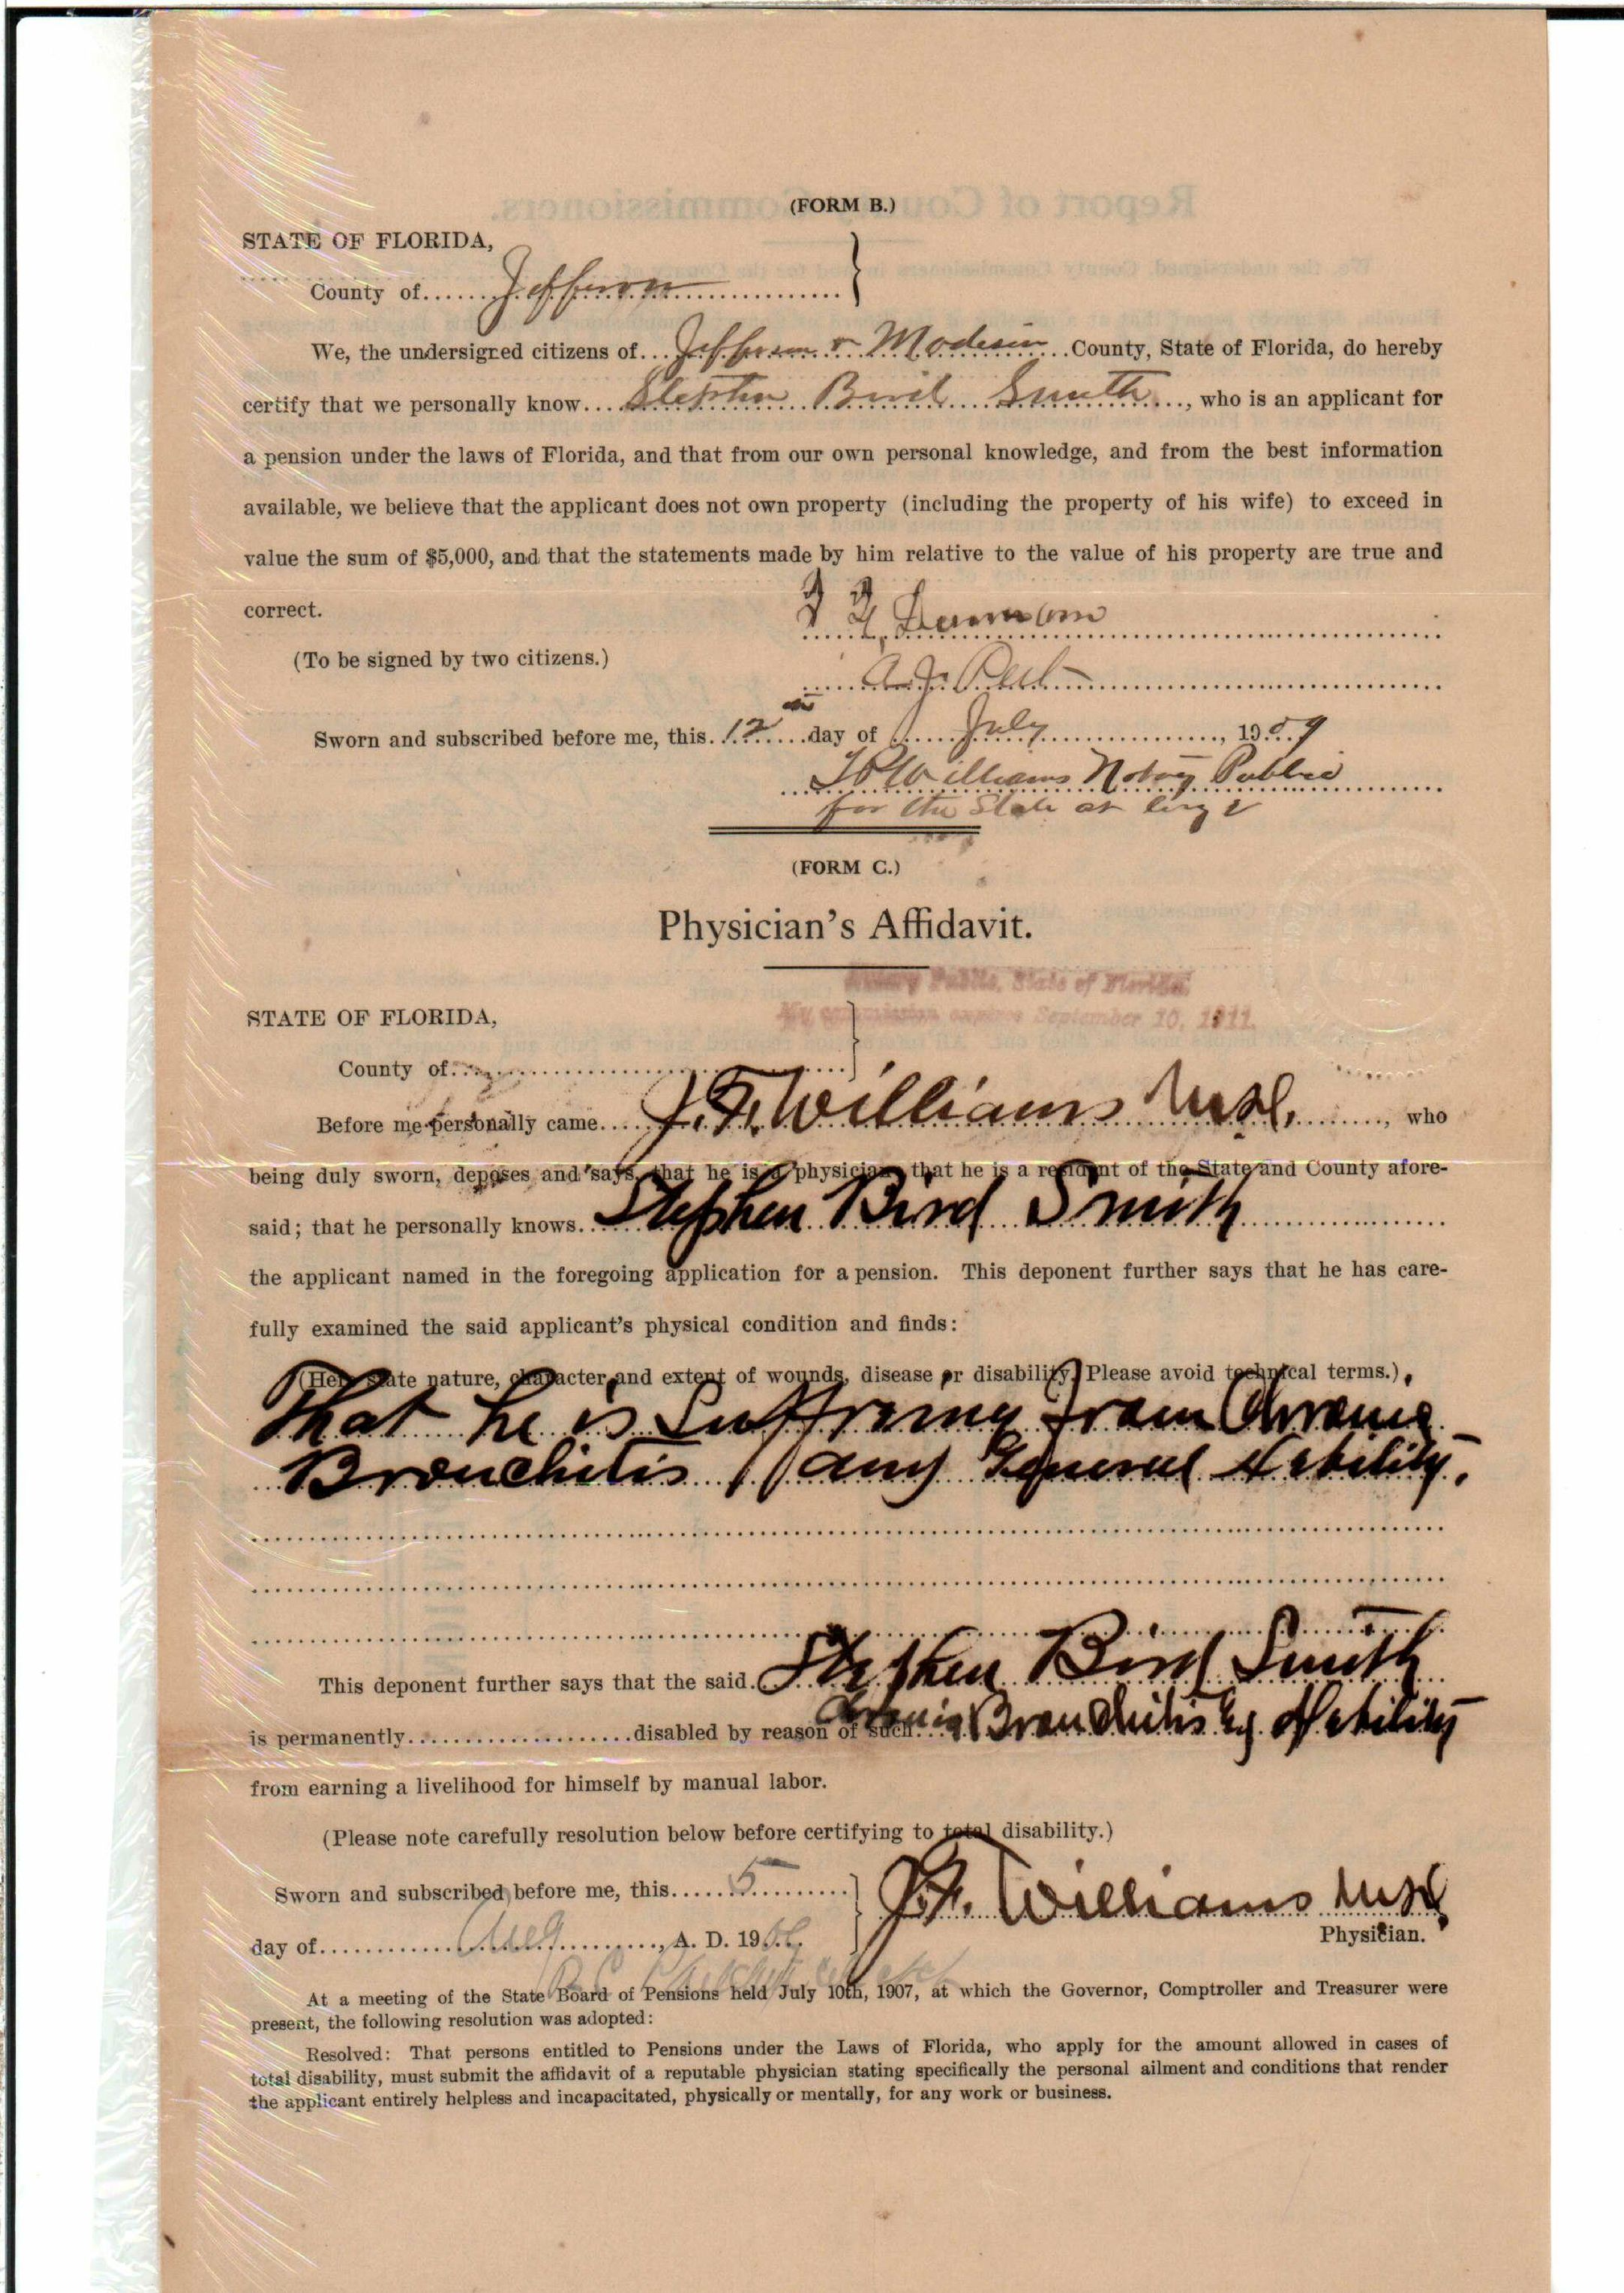 (FORM B.)
STATE OF FLORIDA,
County of Jefferson
We, the undersigned citizens of Jefferson & Madison County, State of Florida, do hereby
certify that we personally know Stephen Bird Smith, who is an applicant for
a pension under the laws of Florida, and that from our own personal knowledge, and from the best information
available, we believe that the applicant does not own property (including the property of his wife) to exceed in
value the sum of $5,000, and that the statements made by him relative to the value of his property are true and
correct.
(To be signed by two citizens.)
A. J.
Sworn and subscribed before me, this 12 day of July, 1909
Williams Notary Public
for the State at large
(FORM C.)
Physician's Affidavit.
Notary Public, State of Florida.
My commission expires September 10, 1911.
STATE OF FLORIDA,
County of
Before me personally came J. F. Williams M.D., who
being duly sworn, deposes and says, that he is a physician, that he is a resident of the State and County afore-
said; that he personally knows Stephen Bird Smith
the applicant named in the foregoing application for a pension. This deponent further says that he has care-
fully examined the said applicant's physical condition and finds:
(Here state nature, character and extent of wounds, disease or disability. Please avoid technical terms.)
That he is Suffering from Chronic
Bronchitis General Debility.
This deponent further says that the said Stephen Bird Smith
is permanently disabled by reason of such Chronic Bronchitis Debility
from earning a livelihood for himself by manual labor.
(Please note carefully resolution below before certifying to total disability.)
Sworn and subscribed before me, this 5
day of Aug, A. D. 19
J. F. Williams M.D.
Physician.
At a meeting of the State Board of Pensions held July 10th, 1907, at which the Governor, Comptroller and Treasurer were
present, the following resolution was adopted:
Resolved: That persons entitled to Pensions under the Laws of Florida, who apply for the amount allowed in cases of
total disability, must submit the affidavit of a reputable physician stating specifically the personal ailment and conditions that render
the applicant entirely helpless and incapacitated, physically or mentally, for any work or business.